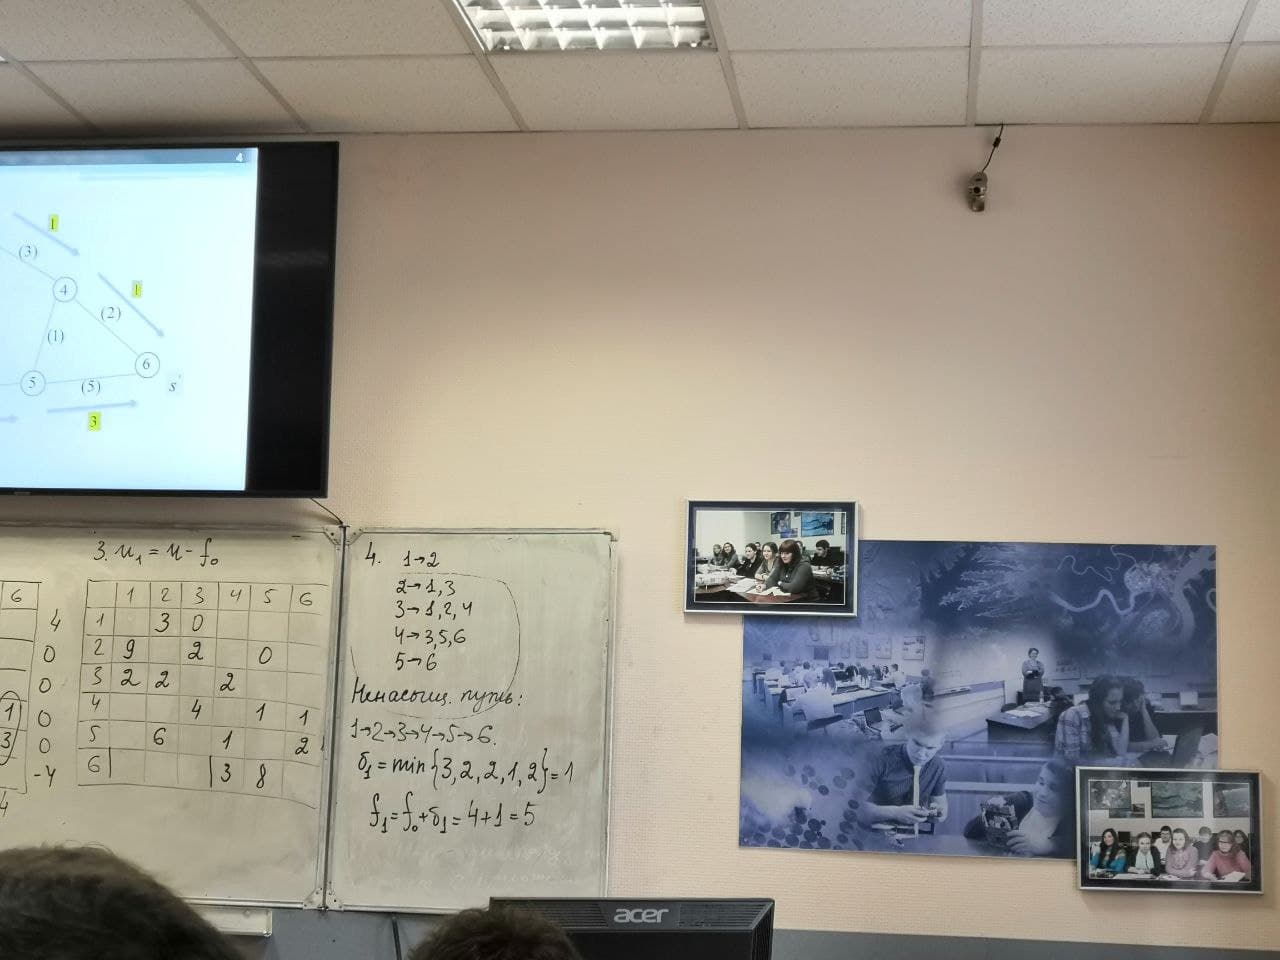 4
1
(3)
4
1
(2)
(1)
6
5
(5)
s
3
6
4
0
0
1 0
3 0
-4
4
3. u₁ = u - f₀
1 2 3 4 5 6
1 3 0
2 9 2 0
3 2 2 2
4 4 1 1
5 6 1 2
6 3 8
4. 1→2
2→1,3
3→1,2,4
4→3,5,6
5→6
Ненасыщ. путь:
1→2→3→4→5→6.
δ₁ = min {3,2,2,1,2} = 1
f₁ = f₀ + δ₁ = 4+1 = 5
acer